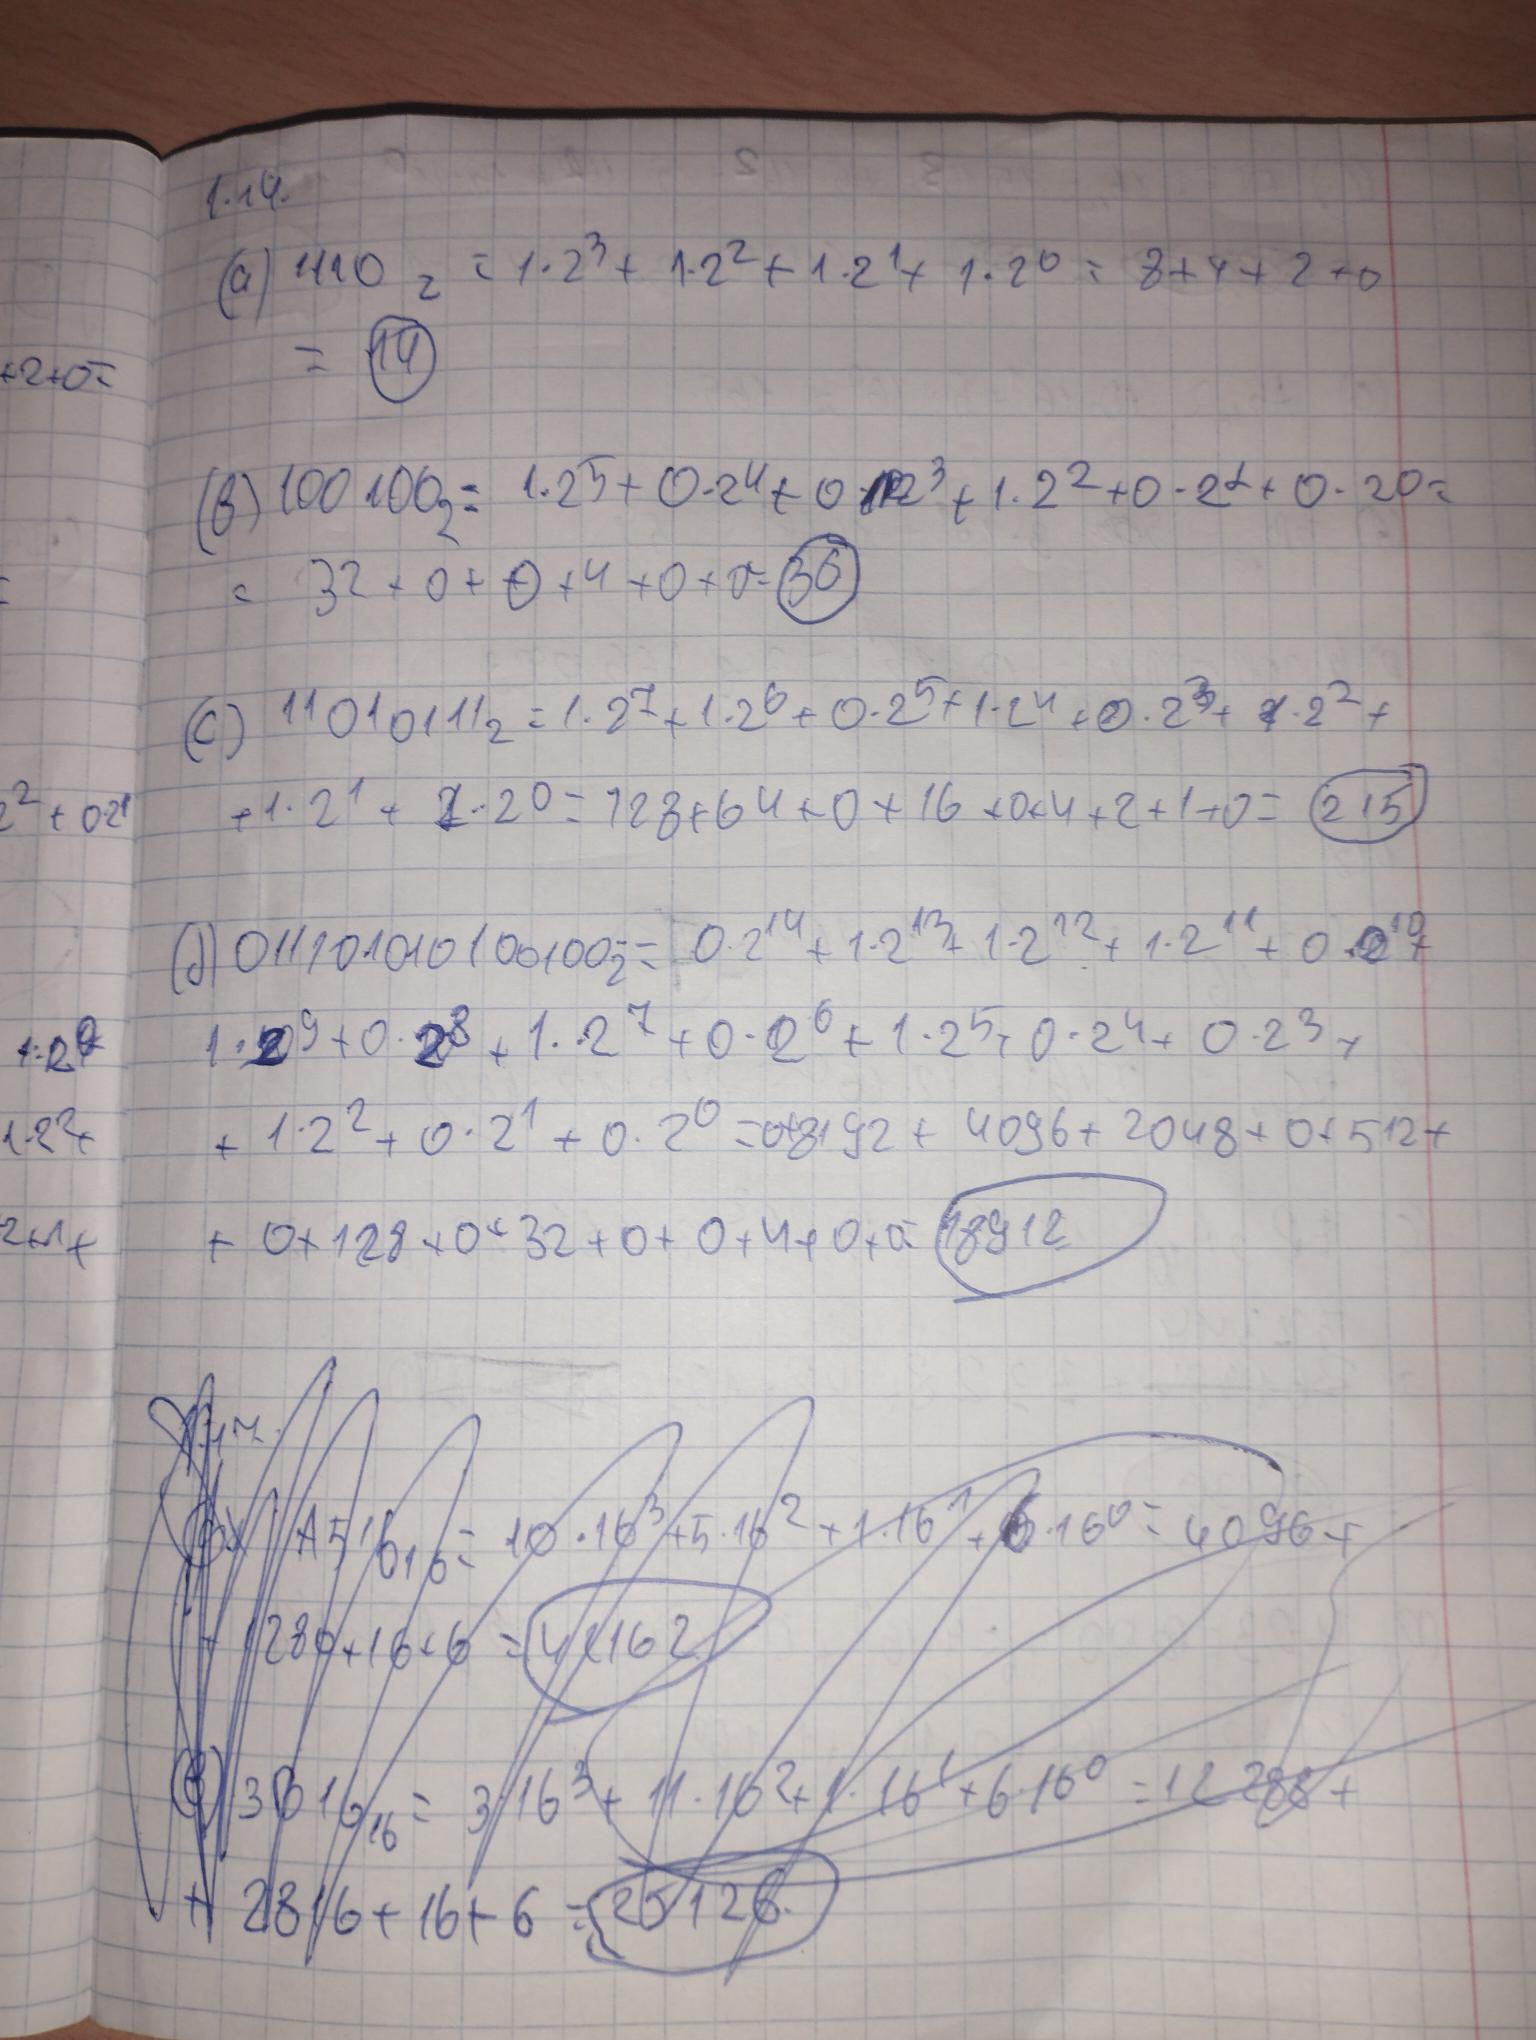 1.14.
(a) 1110₂ = 1·2³ + 1·2² + 1·2¹ + 1·2⁰ = 8+4+2+0
= 14
+2+0=
(b) 100100₂ = 1·2⁵ + 0·2⁴ + 0·2³ + 1·2² + 0·2¹ + 0·20 =
= 32 + 0 + 0 + 4 + 0 + 0 = 36
(c) 11010111₂ = 1·2⁷ + 1·2⁶ + 0·2⁵ + 1·2⁴ + 0·2³ + 1·2² +
2² + 0·2¹
+ 1·2¹ + 1·2⁰ = 128 + 64 + 0 + 16 + 0 + 4 + 2 + 1 + 0 = 215
(d) 011101010100100₂ = 0·2¹⁴ + 1·2¹³ + 1·2¹² + 1·2¹¹ + 0·2¹⁰ +
1·2⁹ + 0·2⁸ + 1·2⁷ + 0·2⁶ + 1·2⁵ + 0·2⁴ + 0·2³ +
1·2²+
+ 1·2² + 0·2¹ + 0·2⁰ = 0+8192 + 4096 + 2048 + 0 + 512 +
2+1+
+ 0 + 128 + 0 + 32 + 0 + 0 + 4 + 0 + 0 = 18912
1.17.
A516₁₆ = 10·16³ + 5·16² + 1·16¹ + 6·16⁰ = 4096 +
+ 1280 + 16 + 6 =
(b) 3B16₁₆ = 3·16³ + 11·16² + 1·16¹ + 6·16⁰ = 12288 +
+ 2816 + 16 + 6 = 25126